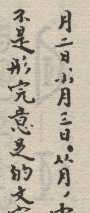 月二日小月三日。从月
不是形完意足的文